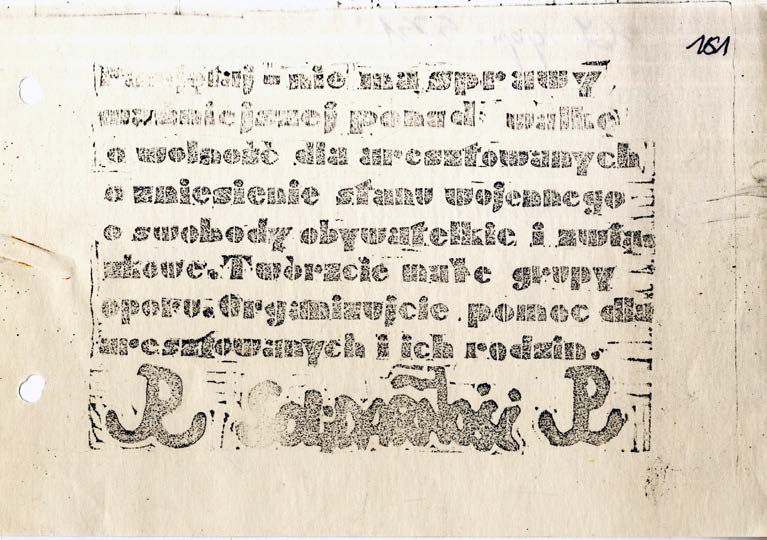 181
Pamiętaj - nie ma sprawy
ważniejszej ponad walkę
o wolność dla aresztowanych
o zniesienie stanu wojennego
o swobody obywatelkie i zwią
zkowe. Twòrzcie małe grupy
oporu. Organizujcie pomoc dla
aresztowanych i ich rodzin.
P Solidarność P